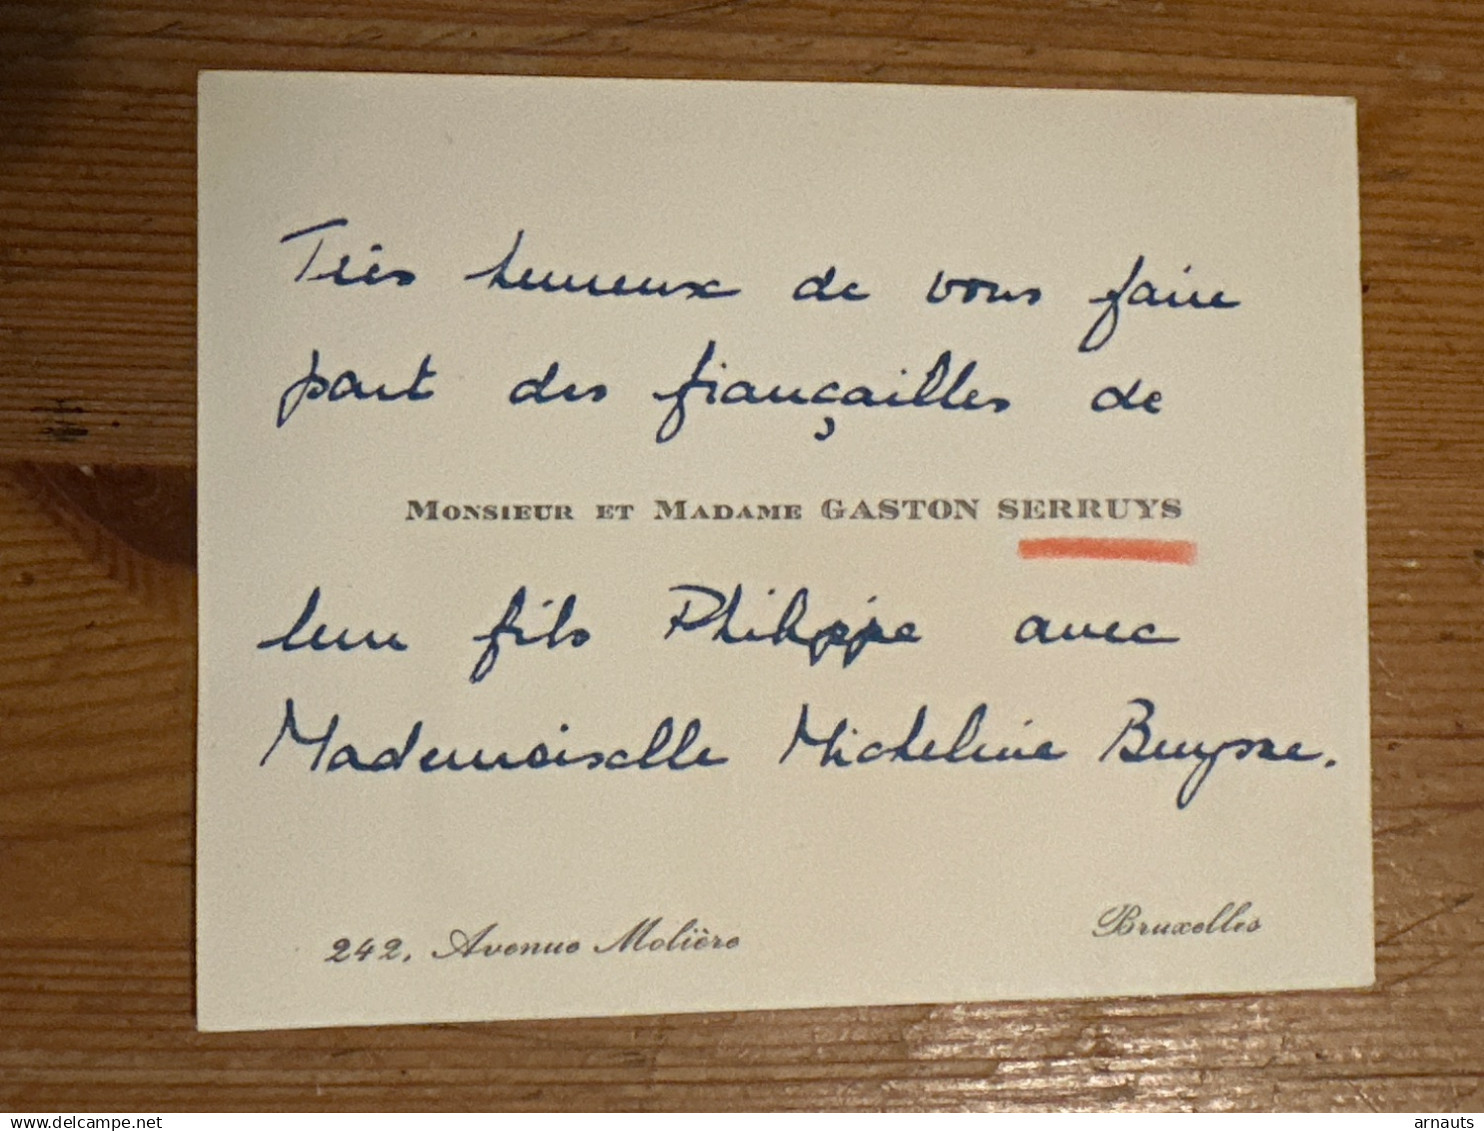 Très heureux de vous faire
part des fiançailles de
MONSIEUR ET MADAME GASTON SERRUYS
leur fils Philippe avec
Mademoiselle Micheline Buysse.
242, Avenue Molière
Bruxelles
www.delcampe.net
arnauts